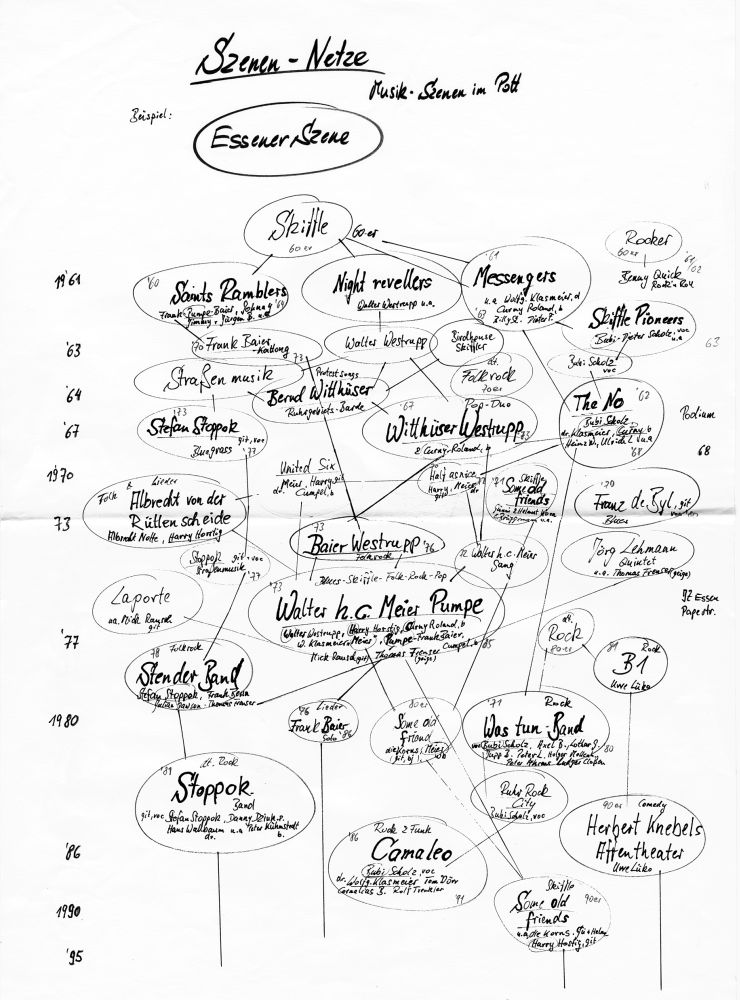 Szenen - Netze
Musik - Szenen im Pott
Beispiel:
Essener Szene
Skiffle
60er
60er
Rocker
60er
'61/62
Benny Quick
Rock'n Roll
1961
'60
Saints Ramblers
Frank Pumpe-Baier, Johnny
Jimmy, Jürgen B. u.a.
'69
Night revellers
Walter Westrupp u.a.
'61
Messengers
u.a. Wolfg. Klasmeier, d
Curny Roland, b
Dieter P.
'67
Skiffle Pioneers
Bubi-Dieter Scholz, voc
u.a.
'63
'70 Frank Baier
-Kattong
73
Walter Westrupp
Birdhouse
Skiffler
63
Bubi Scholz
voc
Straßenmusik
Protestsongs
Bernd Witthüser
Ruhrgebiets-Barde
dt.
Folkrock
70er
'64
'62
The No
Bubi Scholz
dr. Klasmeier, Curny b
Heinz W., Ulrich L u.a.
'68
'67
'73
Stefan Stoppok
git, voc
Bluegrass
'77
'67
Pop-Duo
Witthüser Westrupp
Curny-Roland, b
Podium
68
1970
United Six
Meier, Harry, git
dr. Cumpel, b
Half as nice
Harry, Meier
dr
'71
Skiffle
Some old
friends
'70
Franz de Byl, git
Blues
Folk & Lieder
Albrecht von der
Rüttenscheide
Albrecht Nolte, Harry Horstig
73
73
Baier Westrupp
'76
Folkrock
Walter h.c. Meier
Gang
Jörg Lehmann
Quintet
u.a. Thomas Frenser (geige)
Stoppok git, voc
Straßenmusik
'77
Laporte
u.a. Mick Rausch
git
'73
Blues-Skiffle-Folk-Rock-Pop
Walter h.c. Meier Pumpe
Walter Westrupp, Harry Horstig, Curny Roland, b
W. Klasmeier "Meier", Pumpe-Frank Baier,
Mick Rausch, git, Thomas Frenser, Cumpel, b
(geige)
'85
JZ Essen
Papestr.
'77
dt.
Rock
80er
89
Rock
B1
Uwe Lüko
78 Folkrock
Stender Band
Stefan Stoppok, Frank Baier
Julian Dawson - Thomas Frenser
'76 Lieder
Frank Baier
Solo '86
80er
Some old
friend
die Korns, Meier
git, bj
1980
'71
Rock
Was tun - Band
voc Bubi Scholz, Axel B., Lothar J.
Jupp J. Peter L. Holger
Peter Ludger Claßen
80
'81
dt. Rock
Stoppok
Band
git, voc Stefan Stoppok, Danny Dziuk, p.
Hans Wallbaum u.a. Peter Kühmstedt
dr. b.
Ruhr Rock
City
Bubi Scholz, voc
90er Comedy
Herbert Knebels
Affentheater
Uwe Lüko
'86
'86
Rock & Funk
Camaleo
Bubi Scholz, voc
dr. Wolfg. Klasmeier Tom Dörr
Cornelius B. Rolf Trenkler
'91
1990
Skiffle
Some old
90er
friends
u.a. die Korns, Gü + Helm
Harry Hostig, git
'95